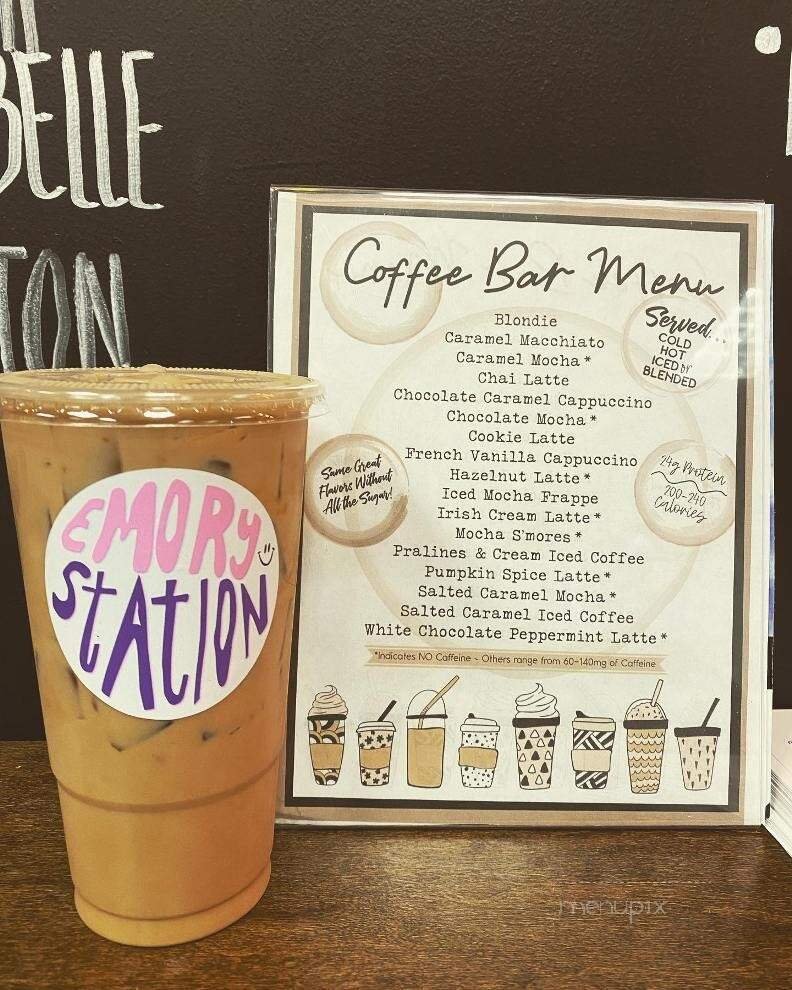 BELLE
TON
EMORY
StAtION
Coffee Bar Menu
Blondie
Caramel Macchiato
Caramel Mocha *
Chai Latte
Chocolate Caramel Cappuccino
Chocolate Mocha *
Cookie Latte
French Vanilla Cappuccino
Hazelnut Latte *
Iced Mocha Frappe
Irish Cream Latte *
Mocha S'mores *
Pralines & Cream Iced Coffee
Pumpkin Spice Latte *
Salted Caramel Mocha *
Salted Caramel Iced Coffee
White Chocolate Peppermint Latte *
*Indicates NO Caffeine ~ Others range from 60-140mg of Caffeine
Served...
COLD
HOT
ICED or
BLENDED
Same Great
Flavors Without
All the Sugar!
24g Protein
200-240
Calories
menupix